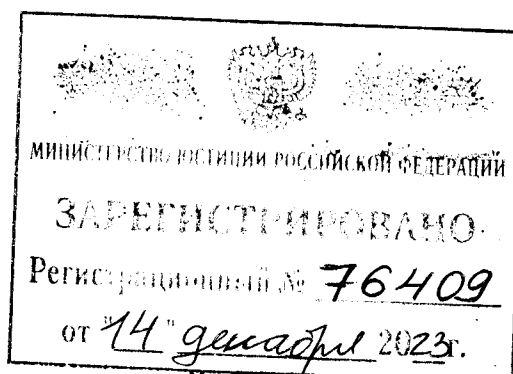 МИНИСТЕРСТВО ЮСТИЦИИ РОССИЙСКОЙ ФЕДЕРАЦИИ
ЗАРЕГИСТРИРОВАНО
Регистрационный № 76409
от "14" декабря 2023г.